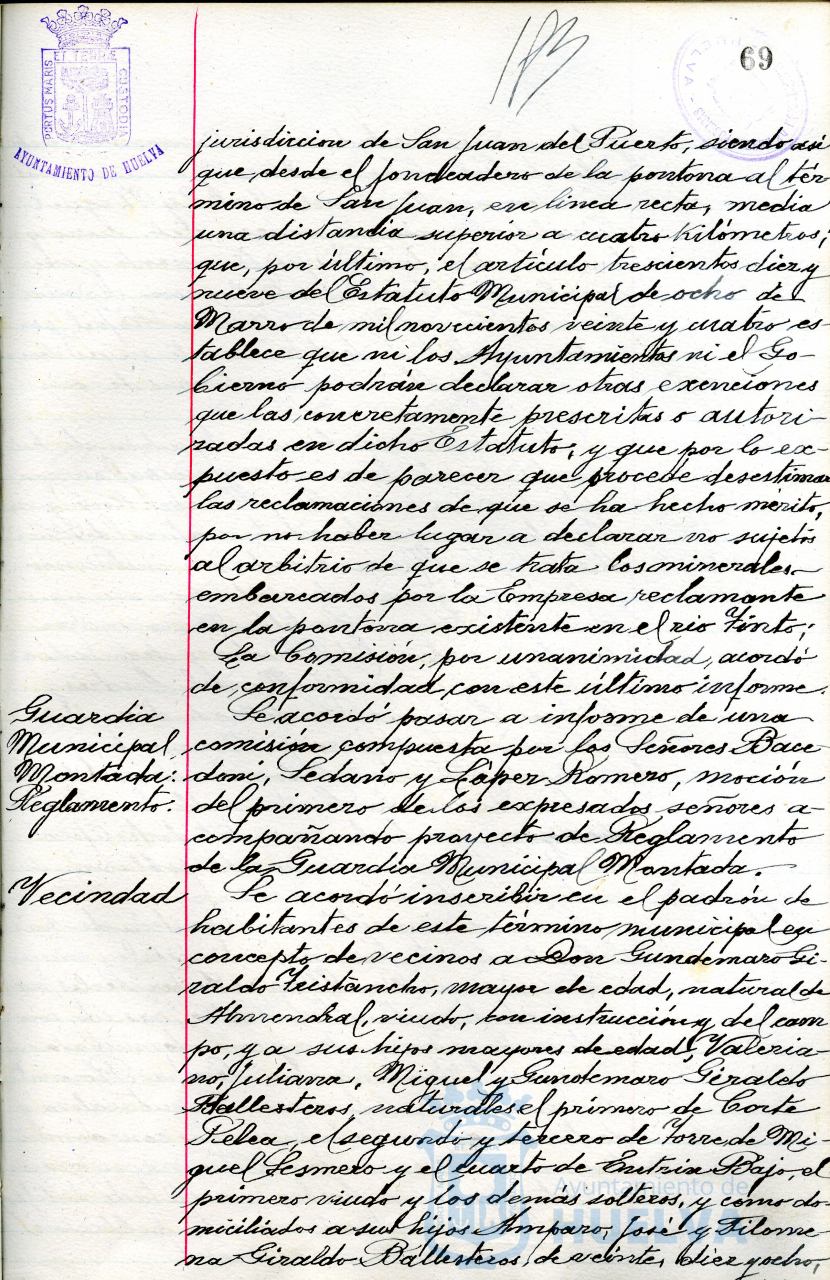 183
69
PORTUS MARIS ET TERRE CUSTODIA
AYUNTAMIENTO DE HUELVA
jurisdiccion de San Juan del Puerto, siendo asi
que, desde el fondeadero de la pontona al tér-
mino de San Juan, en linea recta, media
una distancia superior a cuatro kilómetros;
que, por último, el artículo trescientos diez y
nueve del Estatuto Municipal de ocho de
Marzo de mil novecientos veinte y cuatro es-
tablece que ni los Ayuntamientos ni el Go-
bierno podrán declarar otras exenciones
que las concretamente prescritas o autori-
zadas en dicho Estatuto; y que por lo ex-
puesto es de parecer que procede desestimar
las reclamaciones de que se ha hecho mérito,
por no haber lugar a declarar no sujetos
al arbitrio de que se trata los minerales
embarcados por la Empresa reclamante
en la pontona existente en el rio Tinto;
La Comisión, por unanimidad, acordó
de conformidad con este último informe.
Guardia
Municipal
Montada.
Reglamento.
Se acordó pasar a informe de una
comisión compuesta por los Señores Bace-
doni, Sedano y López Romero, moción
del primero de los expresados señores a-
compañando proyecto de Reglamento
de la Guardia Municipal Montada.
Vecindad
Se acordó inscribir en el padrón de
habitantes de este término municipal en
concepto de vecinos a Don Gundemaro Gi-
raldo Tristancho, mayor de edad, natural de
Almendral, viudo, con instrucción y del cam-
po, y a sus hijos mayores de edad, Valeria-
no, Juliana, Miguel y Gundemaro Giraldo
Ballesteros, naturales el primero de Corte
Pelea, el segundo y tercero de Torre de Mi-
guel Sesmero y el cuarto de Entrin Bajo, el
primero viudo y los demás solteros, y como do-
miciliados a sus hijos Amparo, José y Filome-
na Giraldo Ballesteros, de veinte, diez y ocho,
Ayuntamiento de
HUELVA